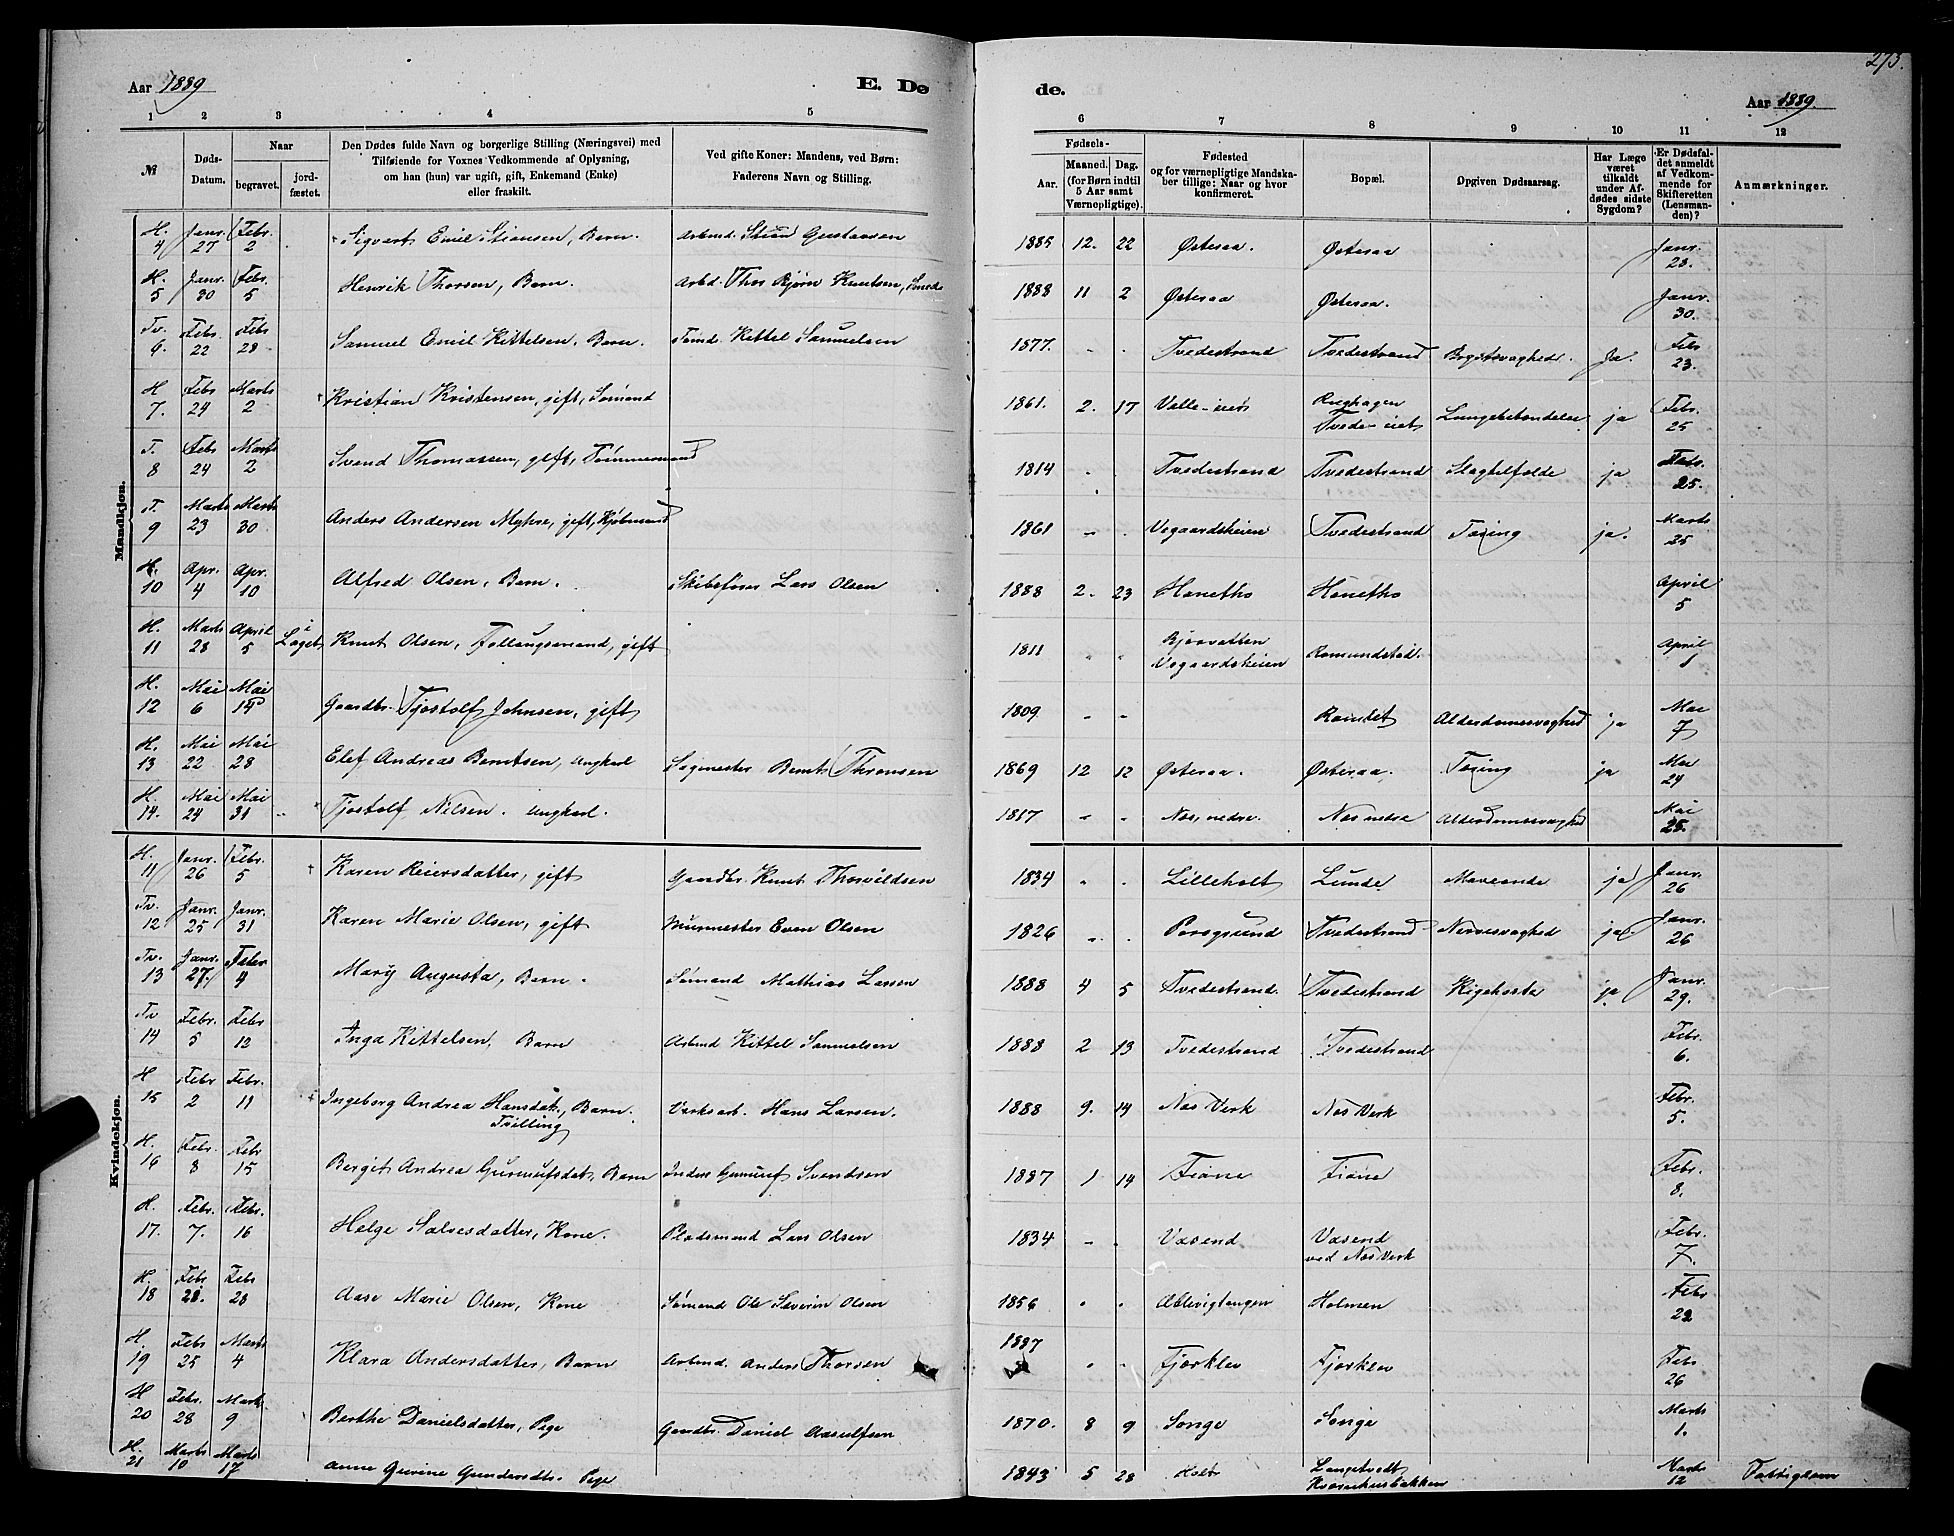 273.
Aar 1889 E. Dø
de. Aar 1889.
1 2 3 4 5 6 7 8 9 10 11 12
№
Døds-Datum.
Naar
begravet.
jord-fæstet.
Den Dødes fulde Navn og borgerlige Stilling (Næringsvei) med
Tilføiende for Voxnes Vedkommende af Oplysning,
om han (hun) var ugift, gift, Enkemand (Enke)
eller fraskilt.
Ved gifte Koner: Mandens, ved Børn:
Faderens Navn og Stilling.
Fødsels-
Aar.
Maaned. Dag.
(for Børn indtil
5 Aar samt
Værnepligtige).
Fødested
og for værnepligtige Mandska-
ber tillige: Naar og hvor
konfirmeret.
Bopæl.
Opgiven Dødsaarsag.
Har Læge
været
tilkaldt
under Af-
dødes sidste
Sygdom?
Er Dødsfal-
det anmeldt
af Vedkom-
mende for
Skifteretten
(Lensman-
den)?
Anmærkninger.
Mandkjøn.
H. 4 Janr. 27 Febr. 2 Sigvart Emil Stiansen, Barn. Arbmd. Stian Gustavsen 1885 12. 22 Østeraa. Østeraa Janr. 28.
H. 5 Janr. 30 Febr. 5 Henrik Thorsen, Barn. Arbd. Thor Bjørn Knutsen, 1888 11 2 Østeraa Østeraa. Janr. 30.
Tv. 6. Febr. 22 Febr 28 Samuel Emil Kittelsen, Barn. Kittel Samuelsen 1877. " " Tvedestrand Tvedestrand Ja. Feb 23.
H 7. Febr 24 Marts 2 Kristian Kristensen, gift, Sømand 1861. 2. 17 Valle-eiet Tvede-eiet Lungebetændelse ja Febr. 25
T. 8 Febr 24 Marts 2 Svend Thomassen, gift, Tømmermand 1814 " Tvedestrand Tvedestrand Slagtilfælde ja Febr. 25.
T. 9 Marts 23 Marts 30 Anders Andersen Myhre, gift, Kjøbmand 1861 " " Vegaardsheien Tvedestrand Tæring ja. Marts 25
H. 10 Apr. 4 Apr. 10 Alfred Olsen, Barn. Skibsfører Lars Olsen 1888 2. 23 Hanetho Hanetho April 5
H. 11 Marts 28 April 5 i Laget Knut Olsen, Follaugsmand, gift 1811 " " Bjorvatten Vegaardsheien Romundstad. April 1
H. 12 Mai 6 Mai 14 Gaardbr. Tjostolf Johnsen, gift 1809 " " Ramdet Alderdomssvaghed ja Mai 7
H. 13 Mai 22 Mai 28 Elef Andreas Berntsen, Ungkarl Sagmester Bernt Thomsen 1869 12 12 Østeraa. Østeraa. Tæring ja Mai 24
H. 14. Mai 24 Mai 31 Tjostolf Nilsen. Ungkarl. 1817 " " Nes, nedre. Nes nedre Alderdomssvaghed Mai 25.
Kvindekjøn.
H. 11 Janr. 26 Febr. 5 Karen Reiersdatter, gift Gaardbr. Knut Thorvildsen 1834 " " Lilleholt Lunde Mavesonde ja Janr. 26
Tv. 12 Janr. 25 Janr. 31 Karen Marie Olsen, gift Murmester Even Olsen 1826 " " Porsgrund Tvedestrand Nervesvaghed ja Janr. 26
Tv. 13 Janr. 27. Febr 4 Mary Augusta, Barn. Sømand Mathias Larsen 1888 4 5 Tvedestrand. Tvedestrand Kighoste ja Janr. 29.
Tv 14 Febr. 5 Febr 12 Inga Kittelsen, Barn Arbmd Kittel Samuelsen 1888 2 13 Tvedestrand Tvedestrand Febr. 6.
H 15 Febr 2 Febr. 11 Ingeborg Andrea Hansdat., Barn. Tvilling Verksarb. Hans Larsen. 1888 9. 14 Nes Verk Nes Verk Febr. 5.
H. 16 Febr. 8 Febr 15 Bergit Andrea Gunnufsdat, Barn Inders Gunnuf Svendsen 1887 1 14 Fiane Fiane Febr. 8.
H. 17. Febr. 7. Febr. 16 Helge Salvesdatter, Kone. Pladsmand Lars Olsen 1834 " " Vasend Vasend ved Nes Verk Febr. 7.
H. 18 Febr 21. Feb 28 Aase Marie Olsen, Kone Sømand Ole Severin Olsen 1856 " " Ablevigtangen Holmen Febr 22
H. 19 Febr 25 Marts 4 Klara Andersdatter, Barn Arbmd. Anders Thorsen 1887 " " Fjærklev Fjærklev Feb 26
H 20 Febr. 28 Mart. 9 Berthe Danielsdatter, Pige Gaardbr. Daniel Aasulfsen 1870. 8 9 Songe Songe Marts 1.
H. 21 Marts 10 Marts 17 Anne Gurine Gundersdt. Pige 1843 5 28 Holt Langetvedt Kværnhusbakken Marts 12 Fattiglem